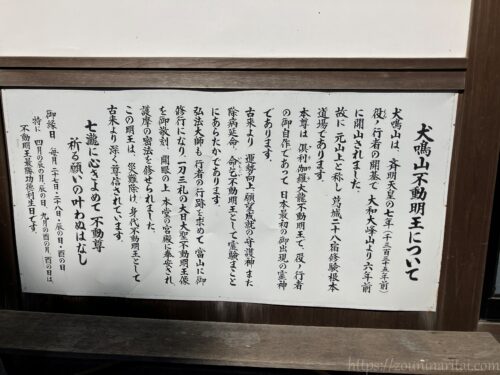 犬鳴山不動明王について
犬鳴山は、斉明天皇の七年(千三百二十五年前)
役ノ行者の開基で 大和大峰山より六年前
に開山されました。
故に 元山上と称し 葛城二十八宿修験根本
道場であります。
本尊は 倶利伽羅大龍不動明王で、役ノ行者
の御自作であって 日本最初の御出現の霊神
であります。
古来より 運勢向上、願望成就の守護神 また
除病延命、命乞不動明王として 霊験まこと
にあらたかであります。
弘法大師も 行者の行跡を求めて 当山に御
修行になり 一刀三礼の大日大聖不動明王像
を御敬刻 開眼の上 本堂の宮殿に奉安され
護摩の密法を修せられました。
この明王は、災難除け、身代不動明王として
古来より深く尊信されています。
七瀧に心きよめて 不動尊
祈る願いの叶わぬはなし
御縁日 毎月二十七日・二十八日・辰の日・酉の日
特に 四月の辰の日・酉の日、九月の酉の日は、
不動明王最勝功徳利生日です。
https://zounimaritai.com